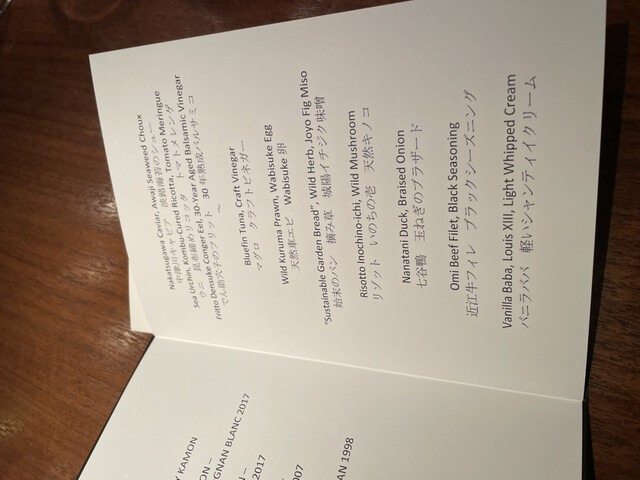 Nakatsugawa Caviar, Awaji Seaweed Choux
中津川キャビア　淡路海苔のシュー
Sea Urchin, Kombu Cured Ricotta, Tomato Meringue
ウニ　昆布締めリコッタ　トマトメレンゲ
Fritto Densuke Conger Eel, 30-Year Aged Balsamic Vinegar
でん助穴子のフリット　30年熟成バルサミコ
～
Bluefin Tuna, Craft Vinegar
マグロ　クラフトビネガー
Wild Kuruma Prawn, Wabisuke Egg
天然車エビ　Wabisuke 卵
"Sustainable Garden Bread", Wild Herb, Joyo Fig Miso
始末のパン　摘み草　城陽イチジク味噌
Risotto Inochino-ichi, Wild Mushroom
リゾット　いのちの壱　天然キノコ
Nanatani Duck, Braised Onion
七谷鴨　玉ねぎのブラザード
Omi Beef Filet, Black Seasoning
近江牛フィレ　ブラックシーズニング
Vanilla Baba, Louis XIII, Light Whipped Cream
バニラババ　軽いシャンティイクリーム
Y KAMON
ON –
GNAN BLANC 2017
N –
2017
007
AN 1998